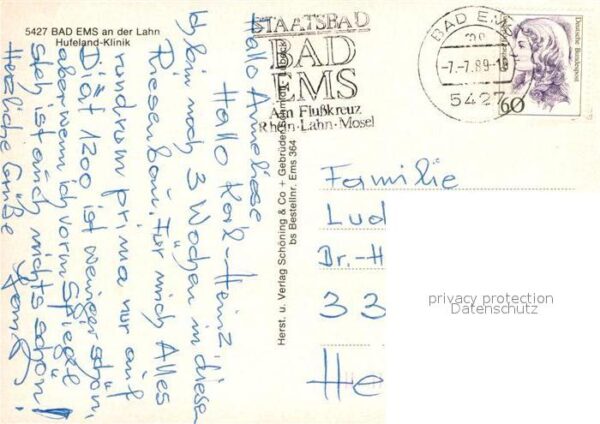 5427 BAD EMS an der Lahn
Hufeland-Klinik
Hallo Anneliese
Hallo Karl-Heinz,
bin noch 3 Wochen in diesen
Riesenbau. Für mich Alles
rundrum prima nur auf
Diät 1200 ist weniger schön,
aber wenn ich vorm Spiegel
steh ist auch nichts schön!
Herzliche Grüße
Herst. u. Verlag Schöning & Co + Gebrüder Schmidt, Lübeck
bs Bestellnr. Ems 364
STAATSBAD
BAD
EMS
Am Flußkreuz
Rhein-Lahn-Mosel
BAD EMS
-7.-7.89-
5427
Deutsche Bundespost
60
Familie
Lud
Dr.-H
33
He
privacy protection
Datenschutz